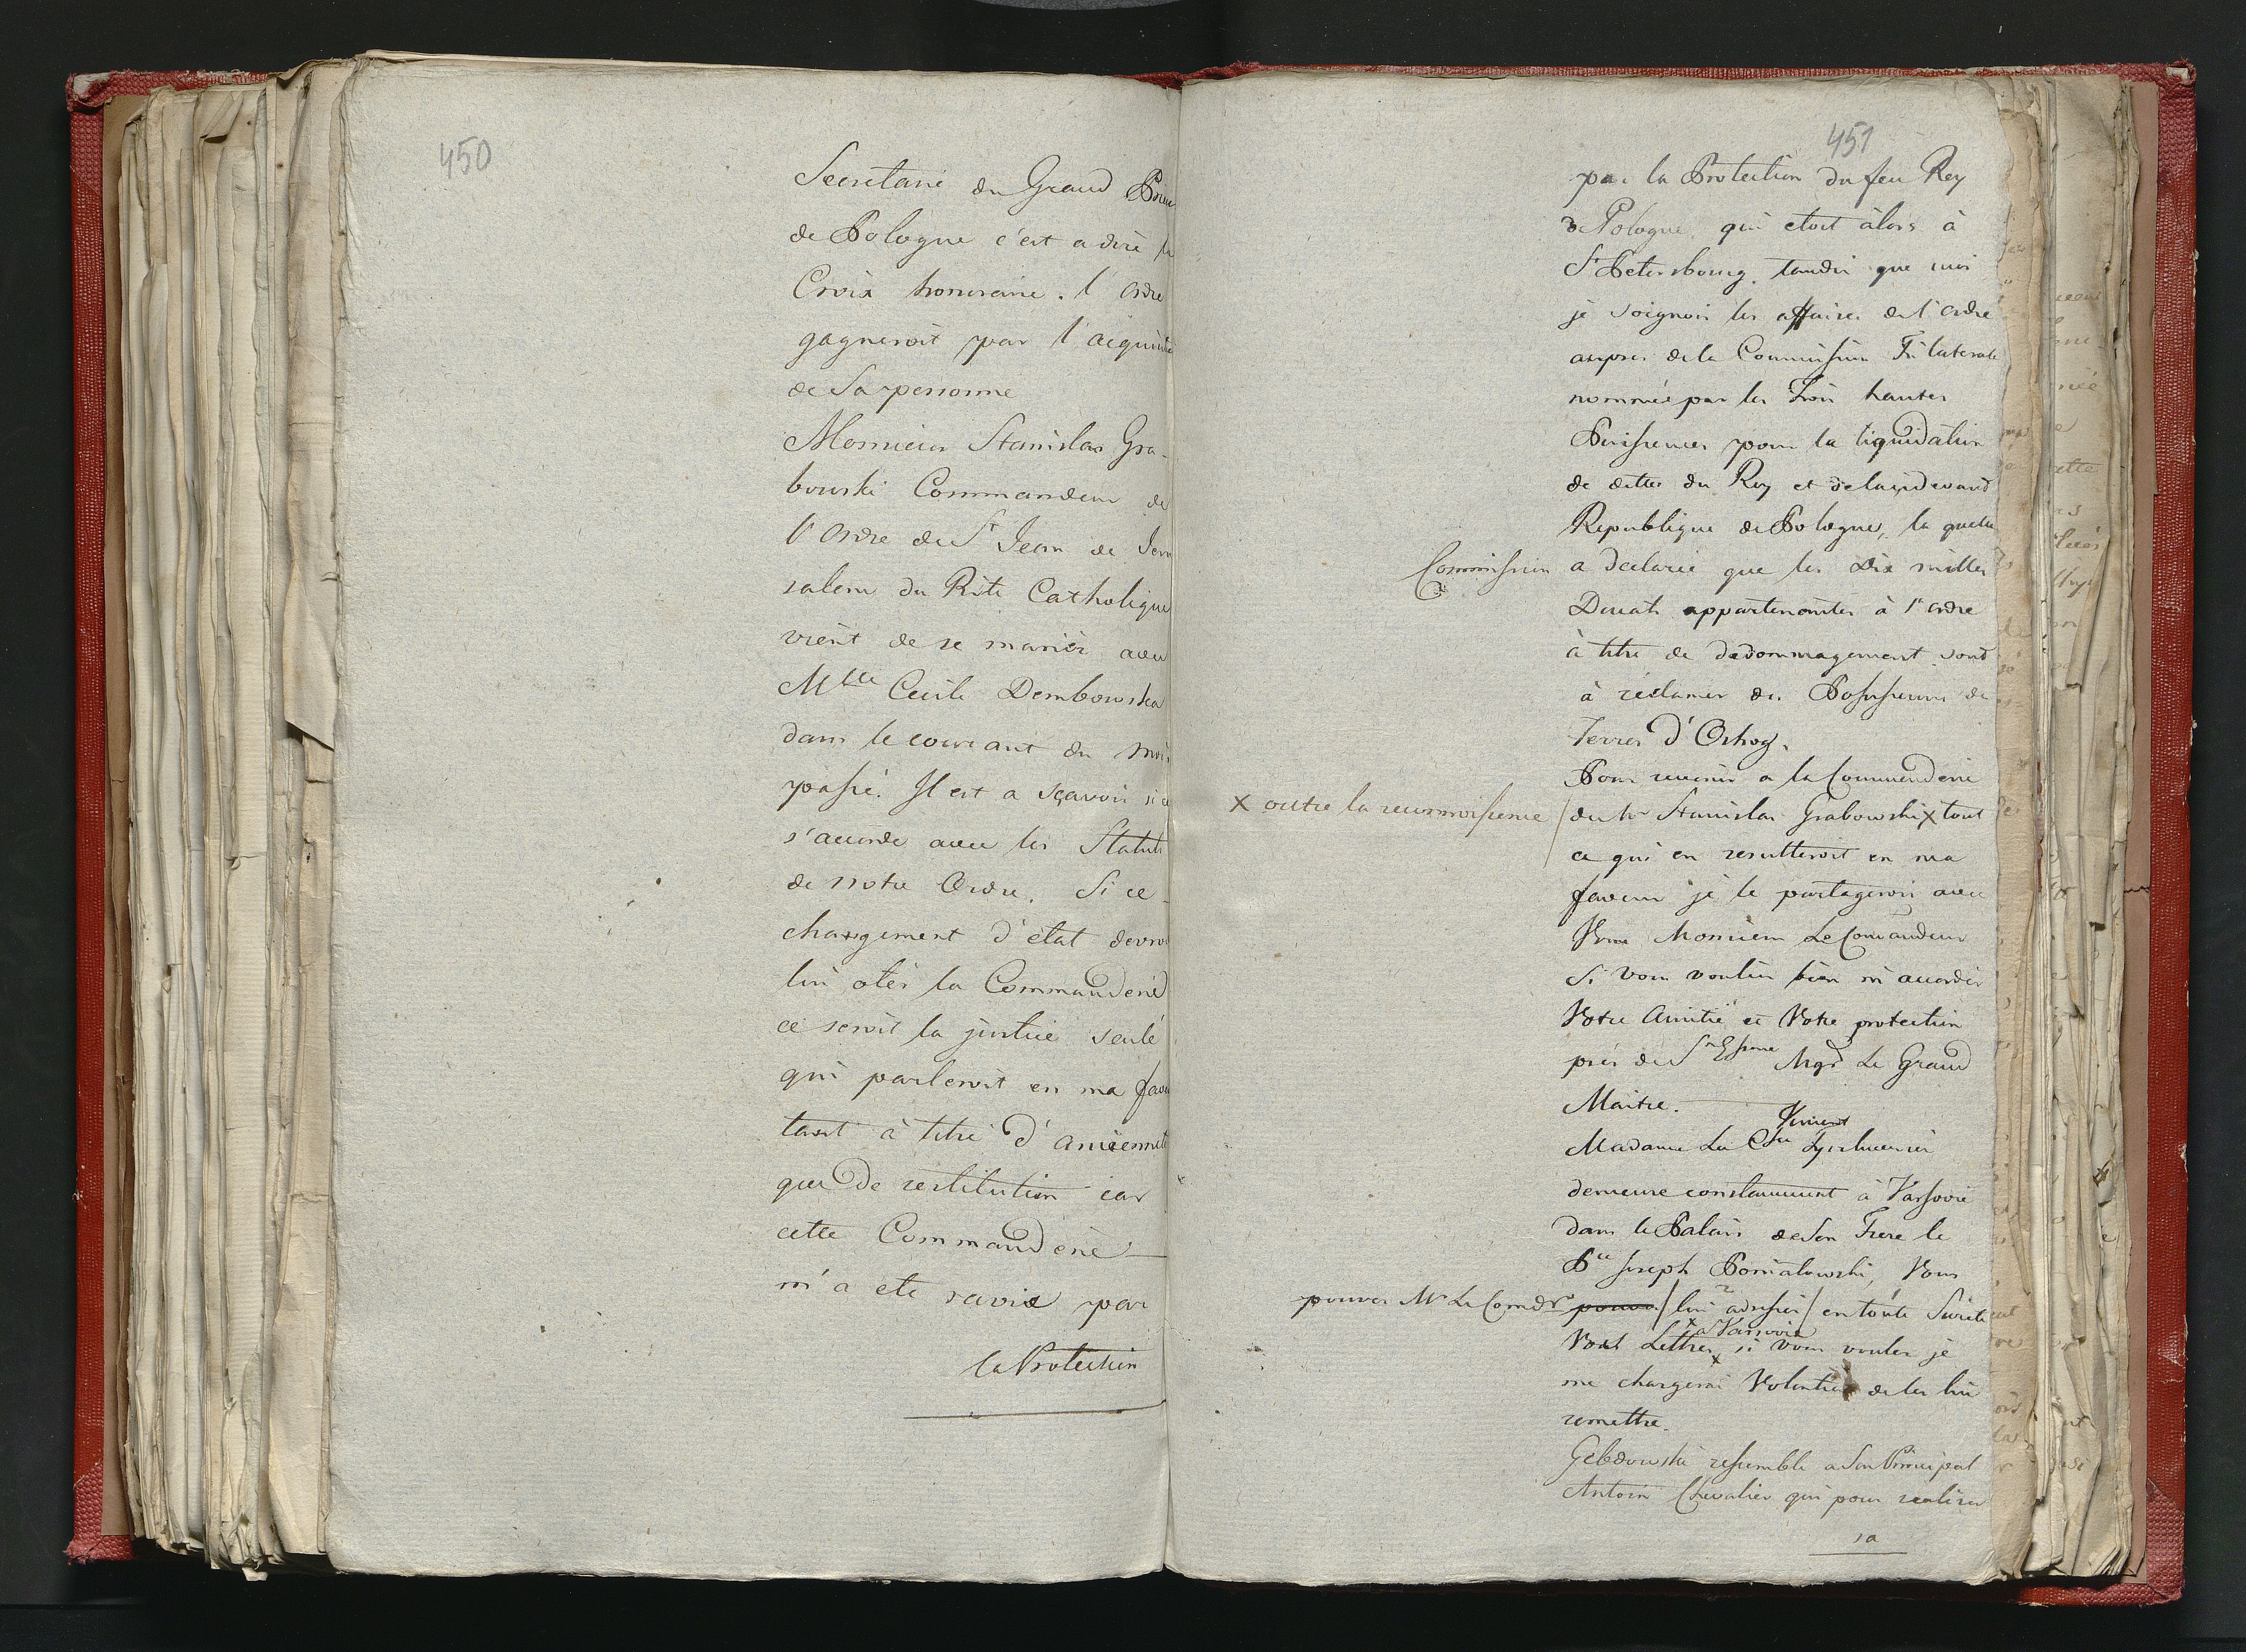 450
Secretaire du Grand Prieur
de Pologne c'est a dire la
Croix honoraire. l'ordre
gagneroit par l'acquisition
de Sa personne
Monsieur Stanislas Gra-
bowski Commandeur de
l'Ordre de St Jean de Jeru
salem du Rite Catholique
vient de se marier avec
Mlle Cecile Dembowska
dans le courant du mois
passé. Il est a sçavoir si ce
s'accorde avec les Statuts
de notre Ordre. Si ce
changement d'état devroit
lui oter la Commanderie
ce seroit la justice seule
qui parleroit en ma faveur
tant à titre d'ancienneté
que de restitution car
cette Commanderie
m'a ete ravie par
la Protection
451
par la Protection du feu Roy
de Pologne qui etoit alors à
St Petersbourg. tandis que moi
je soignois les affaires de l'ordre
aupres de la Commission Trilaterale
nommée par les Trois hautes
Puissances pour la liquidation
de dettes du Roy et de la cidevand
Republique de Pologne, la quelle
Commission a declarée que les Dix milles
Ducats appartenantes à l'ordre
à titre de dedommagement sont
à réclamer des Possesseurs de
Terres d'Ostrog.
Pour revenir a la Commenderie
x outre la reconnoissence / du Mr Stanislas Grabowski x tout
ce qui en resulteroit en ma
faveur je le partagerois avec
Vous Monsieur Le Comandeur
Si vous vouliez bien m'accorder
Votre Amitié et Votre protection
près de Mgr Le Grand
Maitre.
Vincent
Madame La Csse Tyszkiewicz
demeure constamment à Varsovie
dans le Palais de Son Frere le
Pce Joseph Poniatowski, Vous
pouvez Mr Le Comdr pouvez / lui adresser / en toute Sureté
x a Varsovie
Vos Lettres x si vous voulez je
me chargerai Volontiers de les lui
remettre.
Gebdowski resemble a Son Principal
Antoin Chevalier qui pour realiser
sa